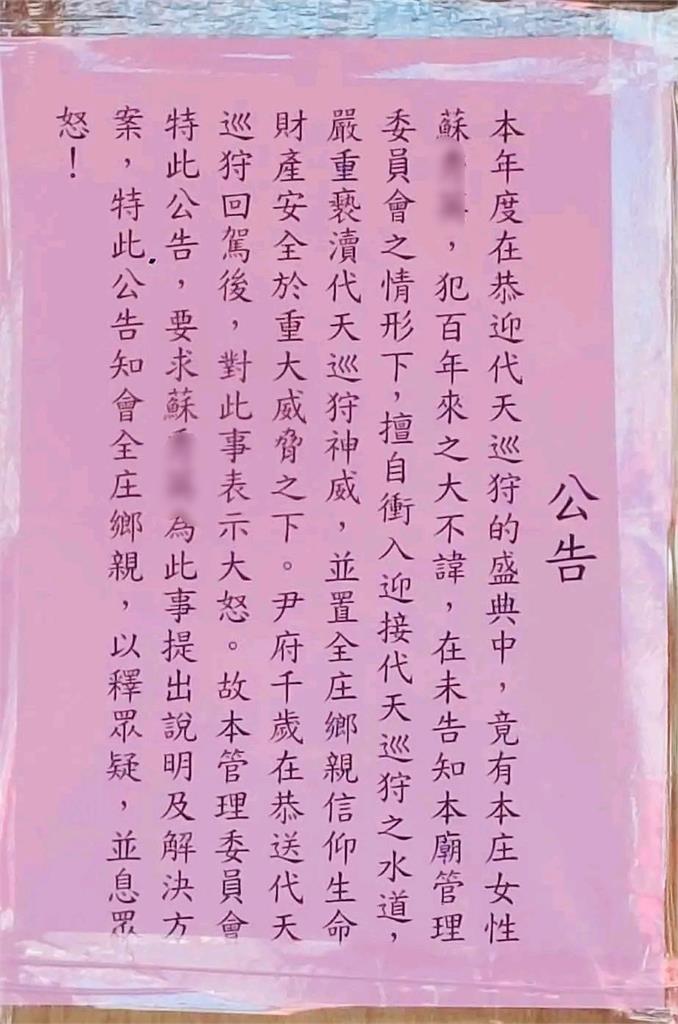 公告
本年度在恭迎代天巡狩的盛典中，竟有本庄女性
蘇，犯百年來之大不諱，在未告知本廟管理
委員會之情形下，擅自衝入迎接代天巡狩之水道，
嚴重褻瀆代天巡狩神威，並置全庄鄉親信仰生命
財產安全於重大威脅之下。尹府千歲在恭送代天
巡狩回駕後，對此事表示大怒。故本管理委員會
特此公告，要求蘇為此事提出說明及解決方
案，特此公告知會全庄鄉親，以釋眾疑，並息眾
怒！